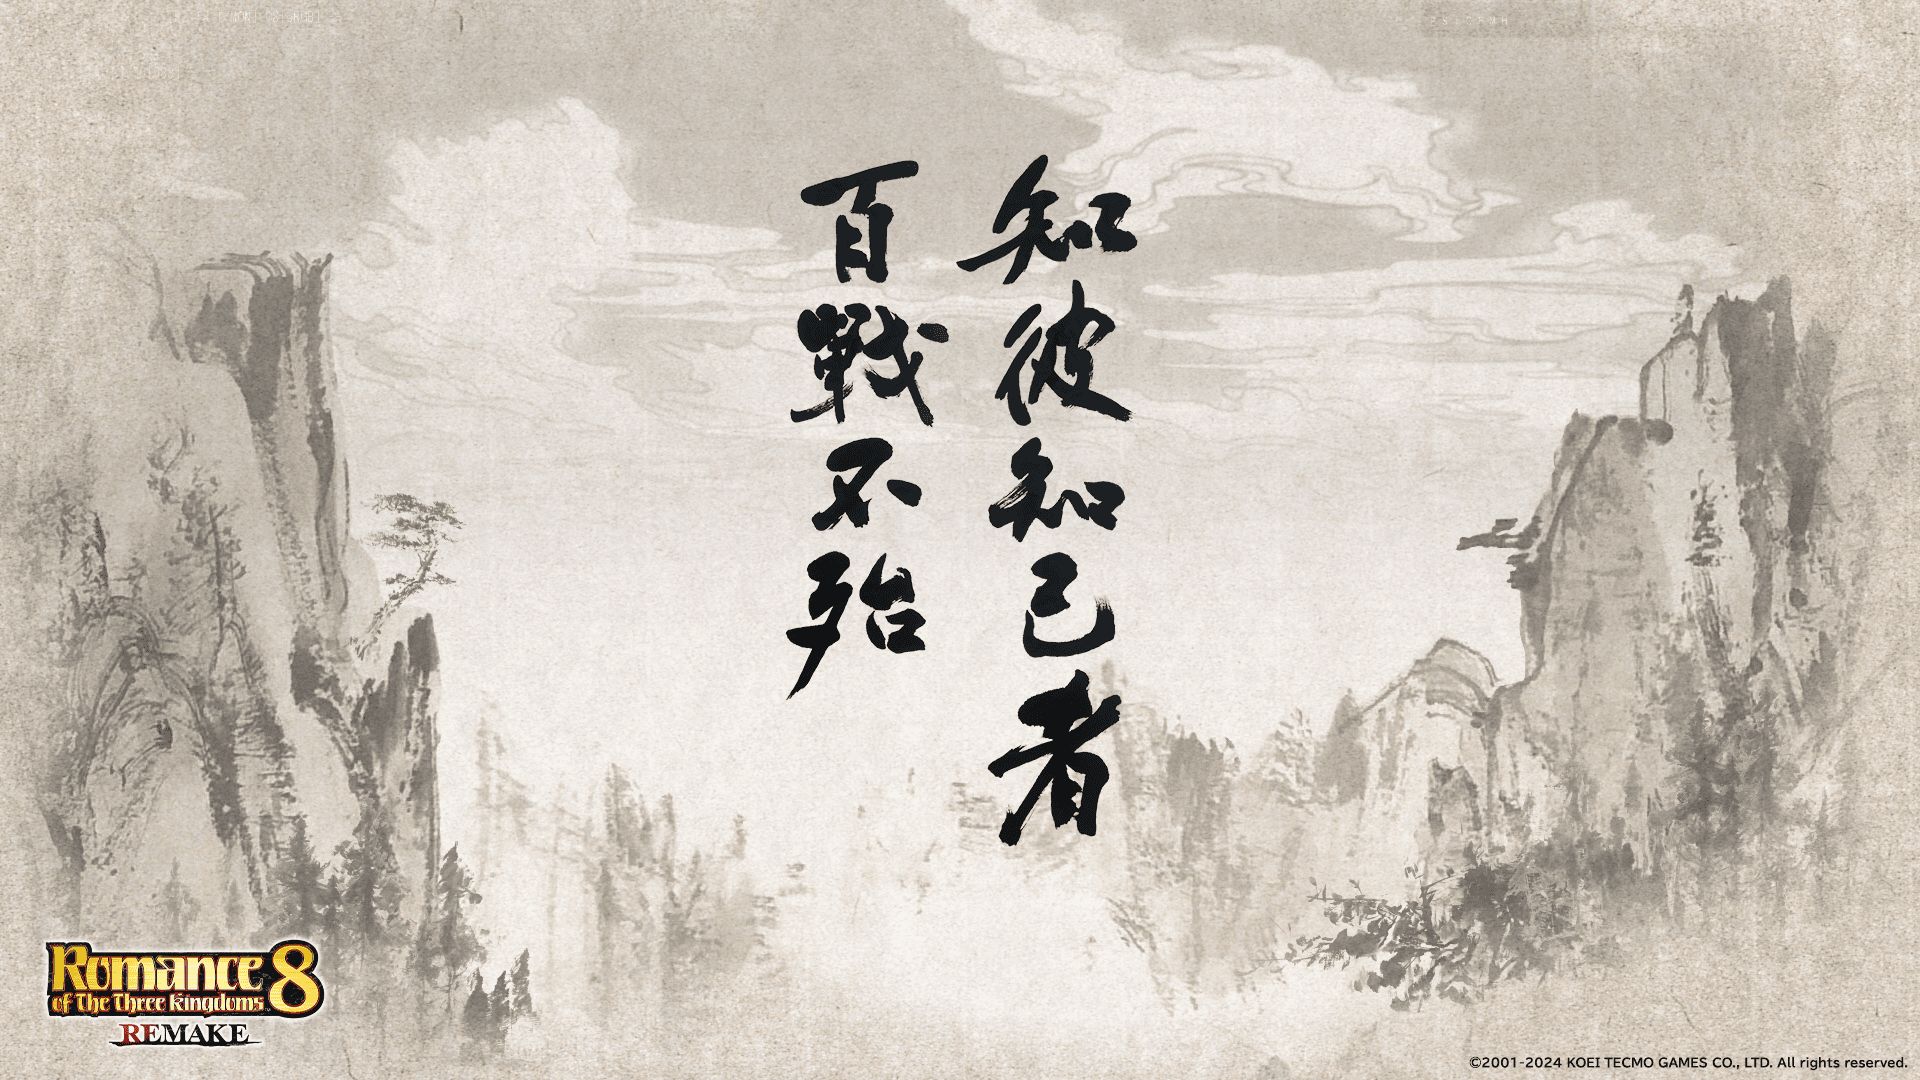 知彼知己者
百戰不殆
Romance 8
of The Three Kingdoms
REMAKE
©2001-2024 KOEI TECMO GAMES CO., LTD. All rights reserved.